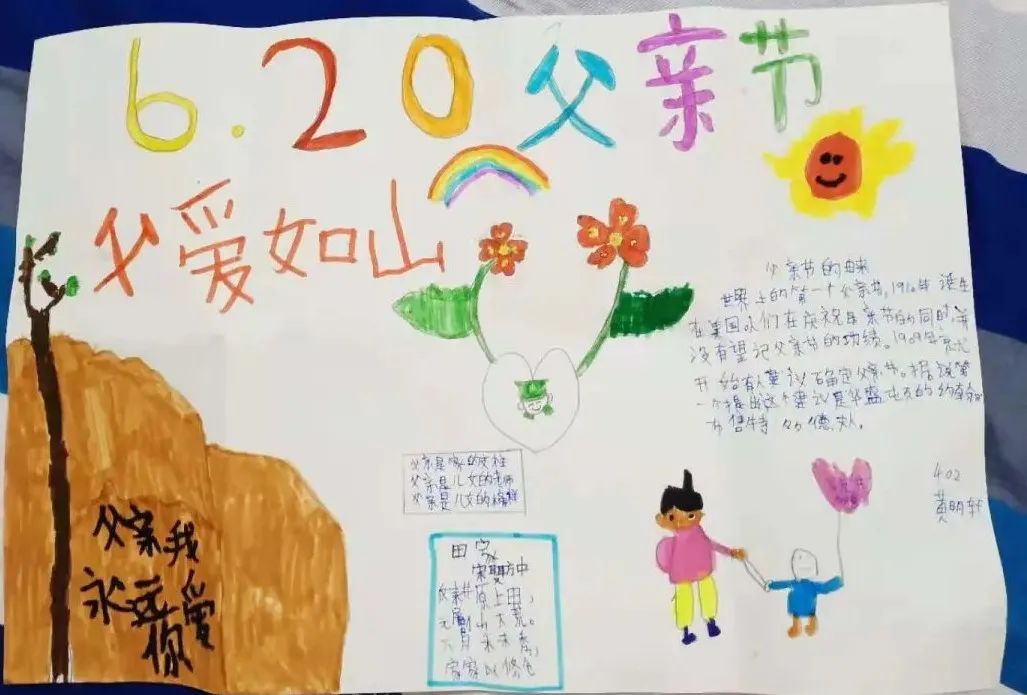 6.20父亲节
父爱如山
父亲节的由来
世界上的第一个父亲节,1910年诞生
在美国人们在庆祝母亲节的同时,并
没有望记父亲节的功绩。1909年
开始有人建议确定父亲节。据说第
一个提出这个建议是华盛顿的
布鲁特 多德夫人。
父亲是家的支柱
父亲是儿女的老师
父亲是儿女的榜样
田家
父耕原上田,
山
六月禾未秀,
家 修仓
父亲我
永远爱
你
402
黄明轩